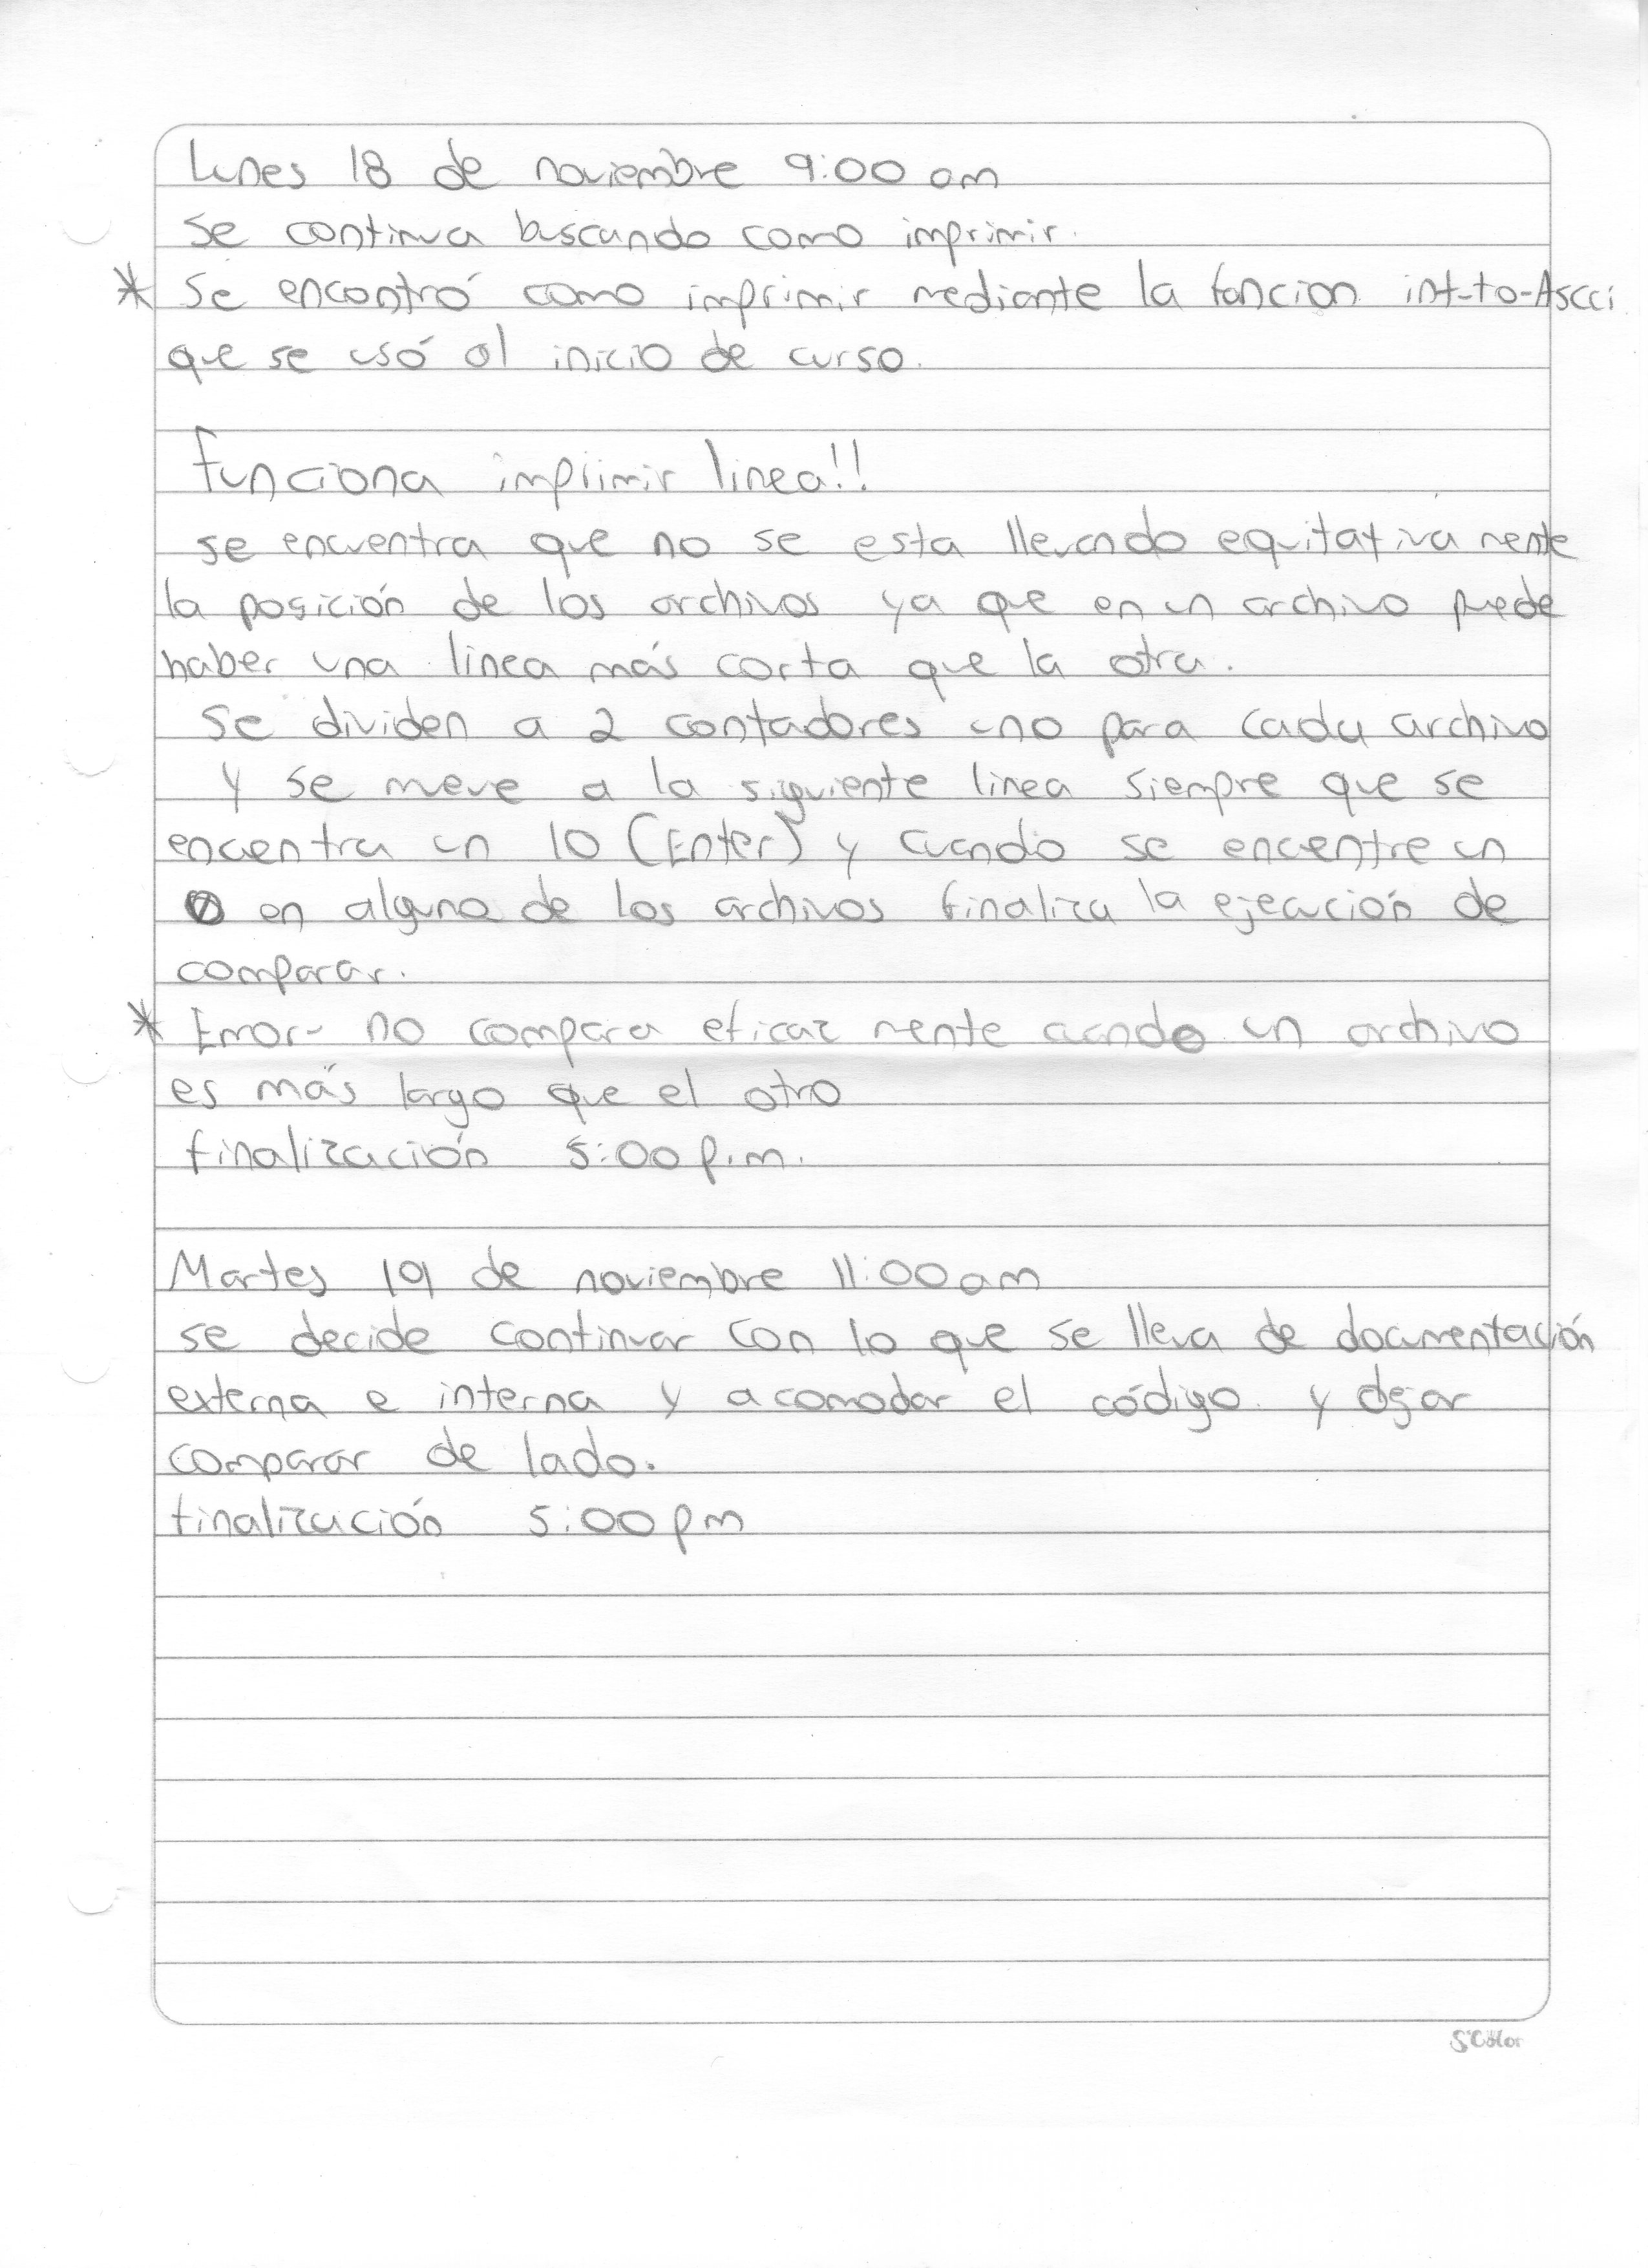 Lunes 18 de noviembre 9:00 am
Se continua buscando como imprimir.
* Se encontró como imprimir mediante la funcion int-to-Ascci
que se usó al inicio de curso.
Funciona imprimir linea!!
se encuentra que no se esta llevando equitativa mente
la posición de los archivos ya que en un archivo puede
haber una linea más corta que la otra.
Se dividen a 2 contadores uno para cada archivo
y se meve a la siguiente linea siempre que se
encuentra un 10 (Enter) y cuando se encuentre un
0 en alguno de los archivos finaliza la ejecución de
comparar.
* Error- no compara eficaz mente cuando un archivo
es más largo que el otro
finalización 5:00 p.m.
Martes 19 de noviembre 11:00 am
se decide continuar con lo que se lleva de documentación
externa e interna y acomodar el código y dejar
comparar de lado.
finalización 5:00 pm